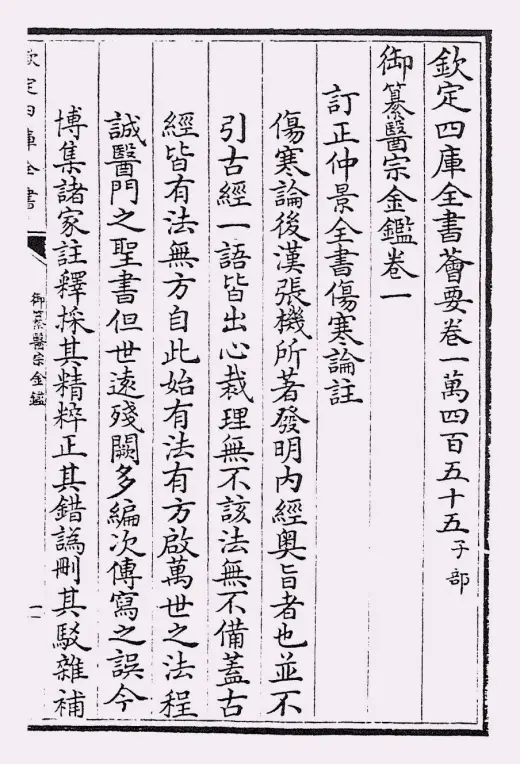 欽定四庫全書薈要卷一萬四百五十五子部
御纂醫宗金鑑卷一
訂正仲景全書傷寒論註
傷寒論後漢張機所著發明內經奥旨者也並不
引古經一語皆出心裁理無不該法無不備蓋古
經皆有法無方自此始有法有方啟萬世之法程
誠醫門之聖書但世遠殘闕多編次傳寫之誤今
博集諸家註釋採其精粹正其錯譌刪其駁雜補
欽定四庫全書
御纂醫宗金鑑
一